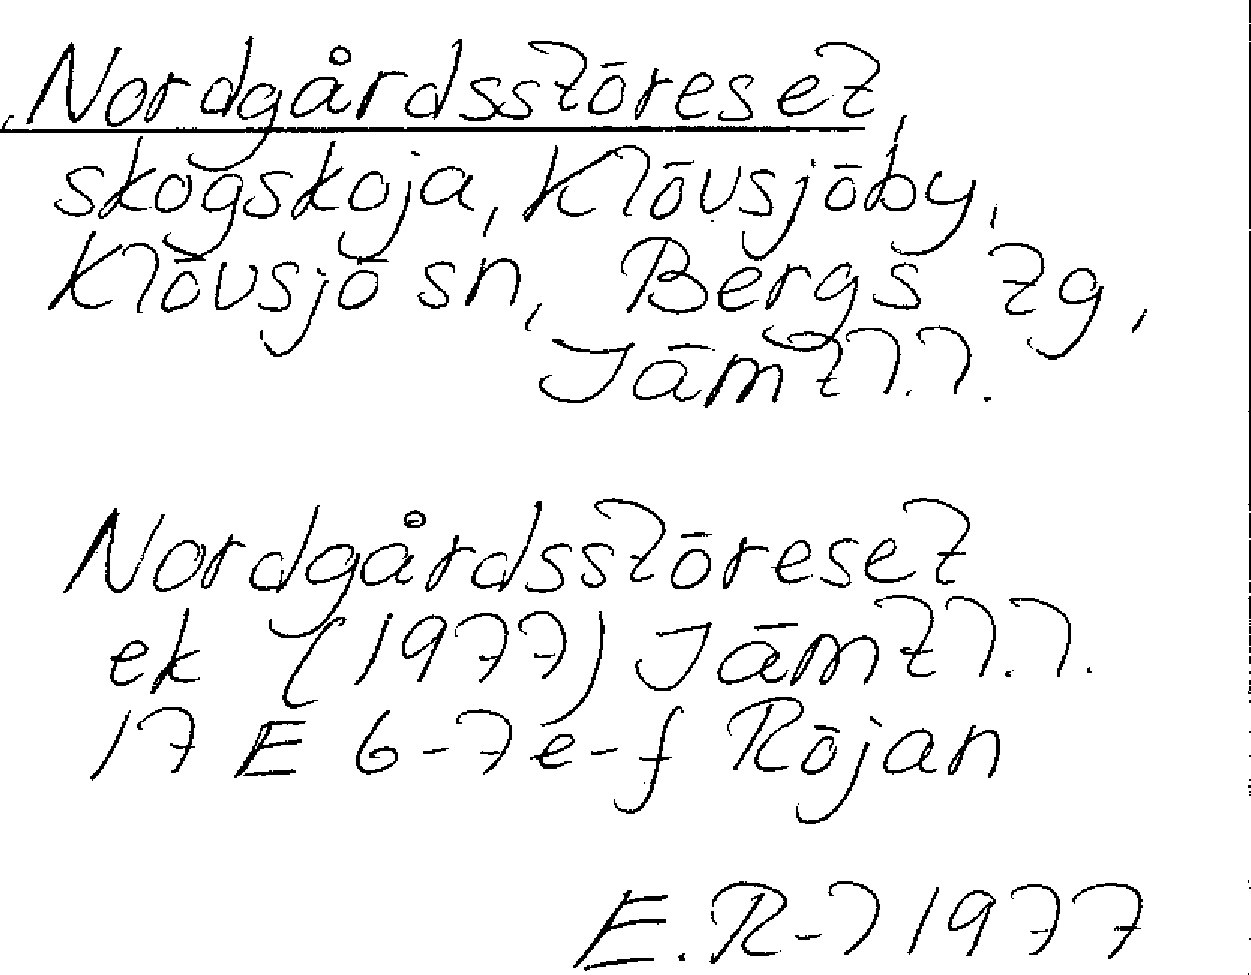 Nordgårdsstöreset,
skogskoja, Klövsjöby,
Klövsjö sn, Bergs tg,
Jämtl.l.
Nordgårdsstöreset
ek (1977) Jämtl.l.
17 E 6-7e-f Röjan
E.R-l 1977